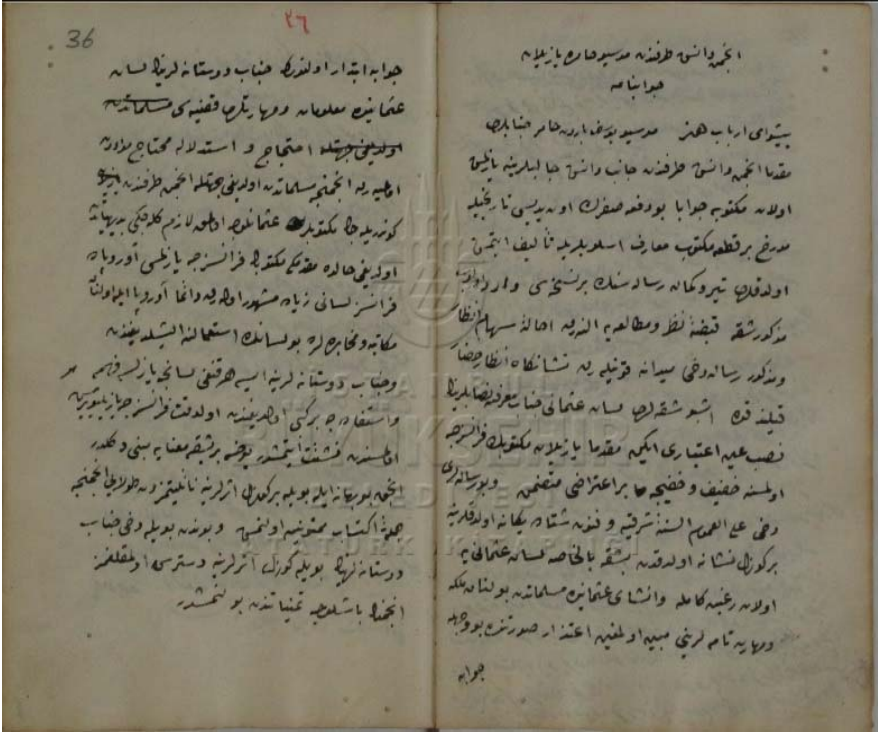 انجمن دانش طرفندن موسیو هامره یازیلان
جوابنامه
پیشوای ارباب هنر موسیو بارون هامر جنابلری
مقدما انجمن دانش طرفندن جانب دانش جالبلرینه یازلمش
اولان مکتوبه جوابا بو دفعه صفرك اون یدیسی تاریخیله
مورخ بر قطعه مکتوب معارف اسلوبلریله تألیف ایتمش
اولدقلری تیر و کمان رساله سنك بر نسخه سی وارد اولوب
مذکور شقه قبضهٔ نظر و مطالعه یه النه رق احالهٔ سهام انظار
ومذکور رساله دخی میدانه قونیله رق نشانکاه انظار حضار
قیلندقده اشبو شقه لری لسان عثمانی
نصب عین اعتباری ایکن مقدما یازیلان مکتوبك فرانسزجه
اولمسنه خفیف و خفیجه بر اعتراضی متضمن وبو رساله لری
دخی علی العموم السنهٔ شرقیه و فنون شتاده یکانه اولدقلرینه
بر کوزل نشانه اولدقدن بشقه بالخاصه لسان عثمانی یه
اولان رغبت کامله وانشای عثمانیده مسلماتدن بولنان ملکه
ومهارت تامه لرینی مبین اولمغین اعتذار صورتنده بو وجهله
جوابه
36
٣٦
جوابه ابتدار اولنورکه جناب دوستانه لرینك لسان
عثمانیده معلومات ومهارتلری قضیه سی مسلماتدن
اولدیغی جهتله احتجاج و استدلاله محتاج
اولمیه رق انجمنجه مسلماتدن اولدیغی جهتله انجمن طرفندن
کوندریله جك مکتوبلرك عثمانلوجه اولمق لازم کله جکی بدیهیاتدن
اولدیغی حالده مقدمکی مکتوبك فرانسزجه یازلمسی آوروپاده
فرانسز لسانی زیاده مشهور اوله رق دائما آوروپا ایله اولنان
مکاتبه ومخابره لرده بو لسانك استعمال اولنه کلدیکندن
وجناب دوستانه لرینه ایسه هر قنغی لسانجه یازلسه فهم
واستفاده جه بر کبی اولدیغندن اولوقت فرانسزجه یازیلیویرمش
اولمسندن نشئت ایتمشدر یوخسه بر بشقه معنایه مبنی دکلدر
انجق بو بهانه ایله بویله بر کوزل اثرلرینه نائلیتمزدن طولایی انجمنجه
جملةً اکتساب ممنونیت اولنمش وبوندن بویله دخی جناب
دوستانه لرینك بویله کوزل اثرلرینه دسترس اولمقلغمز
انجمنك باشلوجه تمنیاتندن بولنمشدر